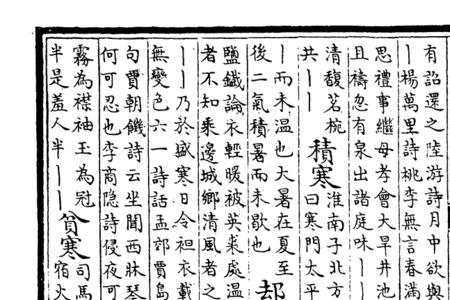 有詔還之陸游詩月中欲與
丨楊萬里詩桃李無言春滿
思禮事繼母考會大旱井池
且禱忽有泉出諸庭味丨丨
清馥茗椀
共丨丨
積寒
淮南子北方
曰寒門太平
丨而未温也大暑在夏至
後二氣積暑而未歇也
却
鹽鐵論衣輕暖被英裘處温
者不知乘邊城鄉清風者之
丨丨乃於盛寒日令袒衣載
無變色六一詩話孟郊賈島
句賈朝饑詩云坐聞西牀琴
何可忍也李商隱詩侵夜可
霧為襟袖玉為冠
半是羞人半丨丨
貧寒
司馬
宿火